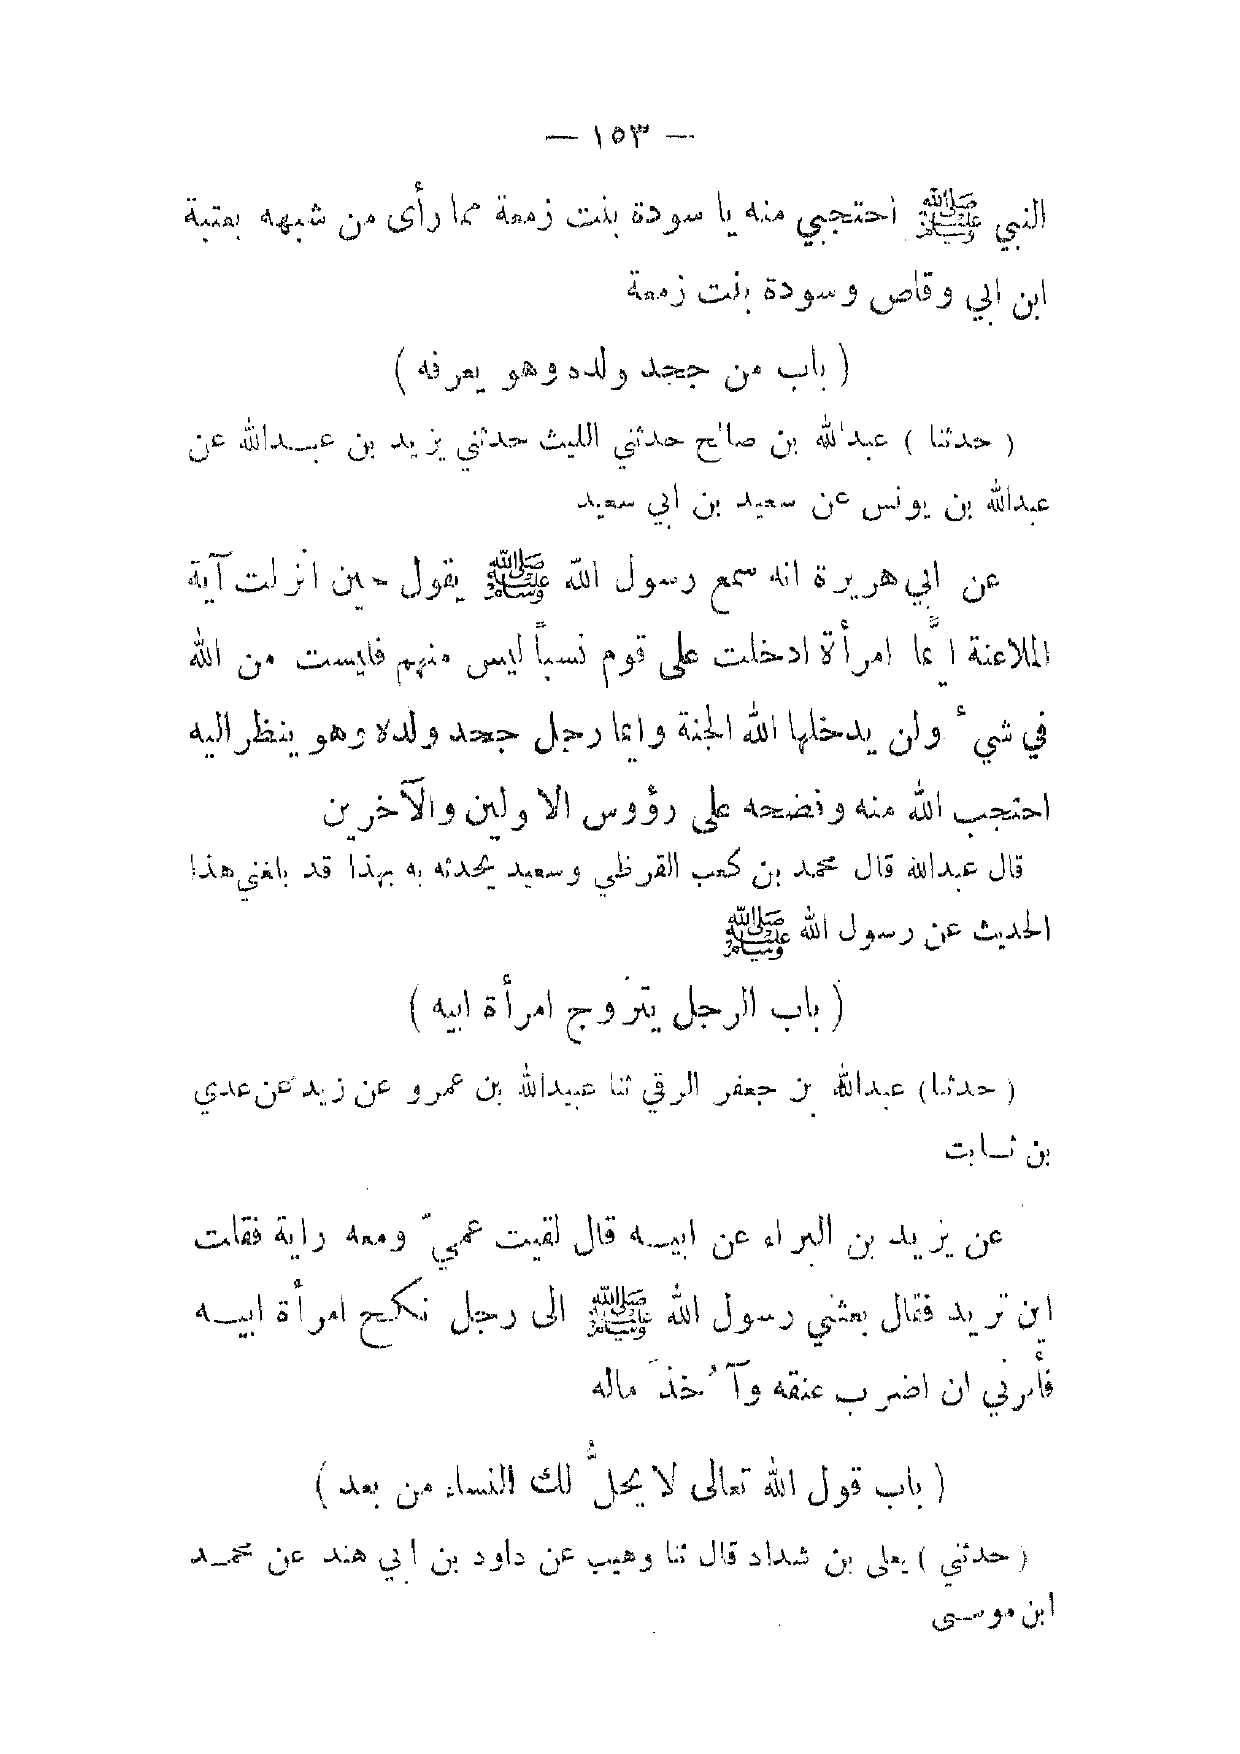 — ١٥٣ —
النبي ﷺ احتجبي منه يا سودة بنت زمعة مما رأى من شبهه بعتبة
ابن ابي وقاص وسودة بنت زمعة
( باب من جحد ولده وهو يعرفه )
( حدثنا ) عبدالله بن صالح حدثني الليث حدثني يزيد بن عبـدالله عن
عبدالله بن يونس عن سعيد بن ابي سعيد
عن ابي هريرة انه سمع رسول الله ﷺ يقول حين انزلت آية
الملاعنة ايّما امرأة ادخلت على قوم نسباً ليس منهم فليست من الله
في شيء ولن يدخلها الله الجنة وايما رجل جحد ولده وهو ينظر اليه
احتجب الله منه وفضحه على رؤوس الاولين والآخرين
قال عبدالله قال محمد بن كعب القرظي وسعيد يحدثه به بهذا قد بلغني هذا
الحديث عن رسول الله ﷺ
( باب الرجل يتزوج امرأة ابيه )
( حدثنا ) عبدالله بن جعفر الرقي ثنا عبيدالله بن عمرو عن زيد عن عدي
بن ثـابت
عن يزيد بن البراء عن ابيـه قال لقيت عمي ومعه راية فقلت
اين تريد فقال بعثني رسول الله ﷺ الى رجل نكح امرأة ابيـه
فأمرني ان اضرب عنقه وآخُذَ ماله
( باب قول الله تعالى لا يحلُّ لك النساء من بعد )
( حدثني ) يعلى بن شداد قال ثنا وهيب عن داود بن ابي هند عن محمـد
ابن موسى